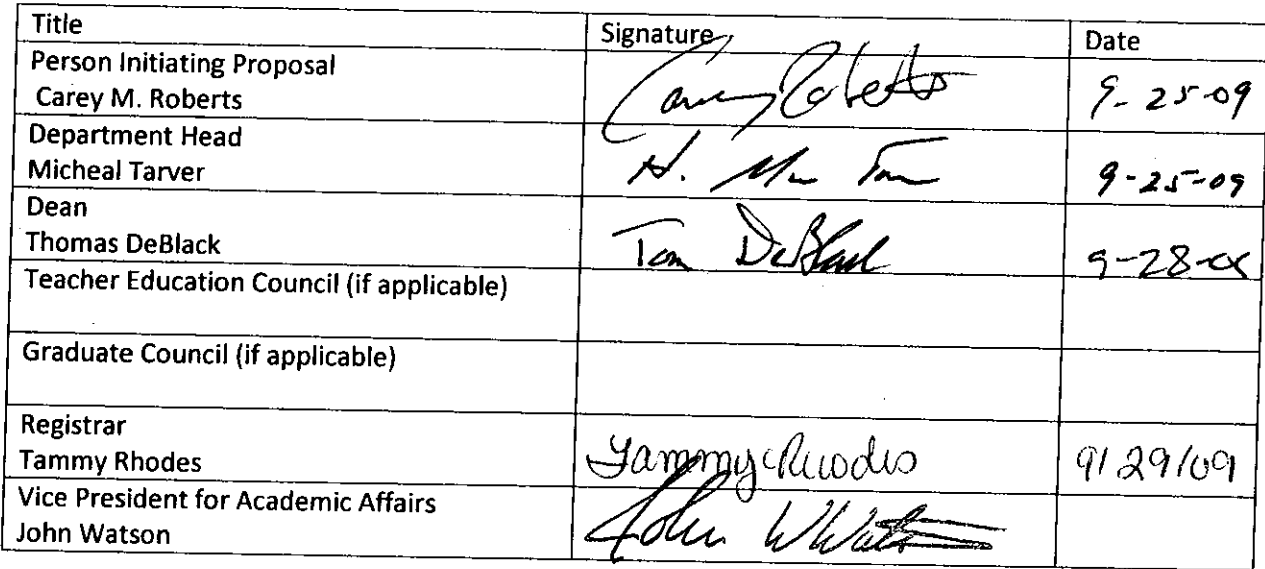 Title Signature Date
Person Initiating Proposal
Carey M. Roberts Carey Roberts 9-25-09
Department Head
Micheal Tarver H. 9-25-09
Dean
Thomas DeBlack Tom DeBlack 9-28-
Teacher Education Council (if applicable)
Graduate Council (if applicable)
Registrar
Tammy Rhodes Tammy Rhodes 9/29/09
Vice President for Academic Affairs
John Watson John W Watson